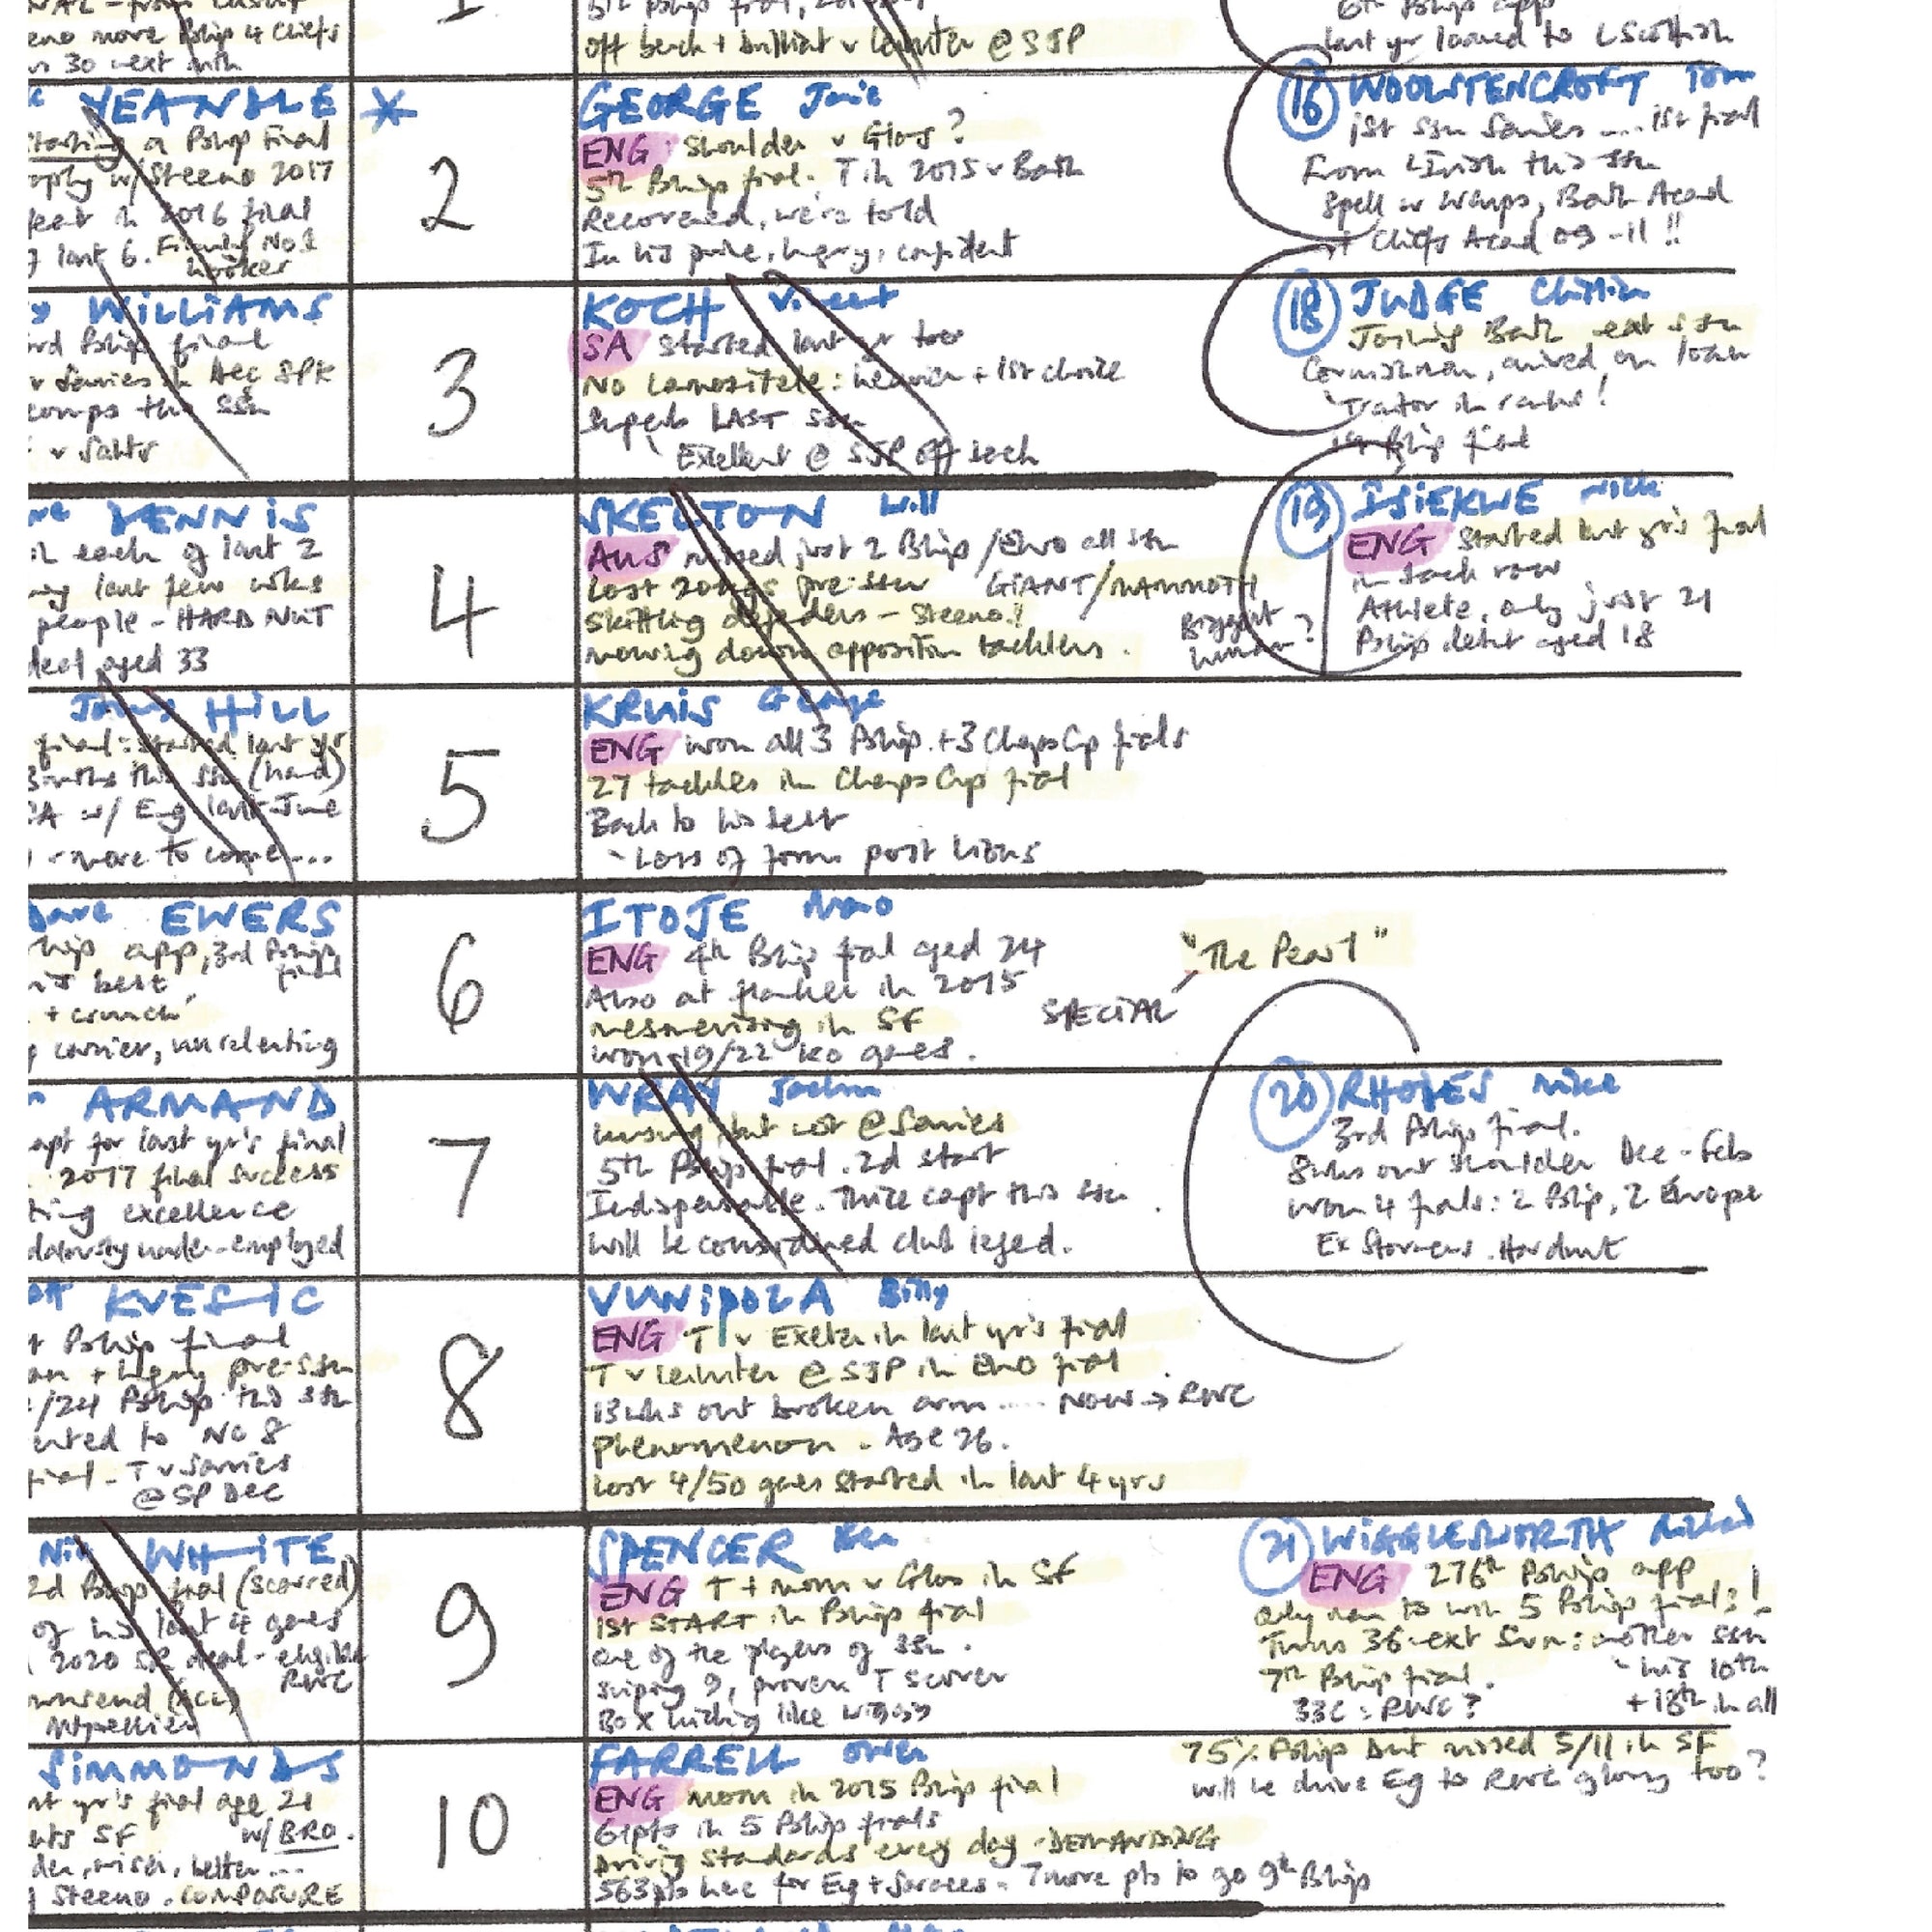 eno more Pship 4 Chiefs
30 next mth
off bench + brilliant v Leinster @ SJP
6th Pship app
last yr loaned to LScottish
YEANDLE *
Starting a Pship Final
w/ Steeno 2017
in 2016 final
last 6. Firmly No1
hooker
2
GEORGE Jamie
ENG shoulder v Glos?
5th Pship final. T in 2015 v Bath
Recovered, we're told
In his prime, hungry, confident
16 WOOLSTENCROFT Tom
1st ssn Sarries .... 1st final
From LIrish this ssn
Spell w Wasps, Bath Acad
+ Chiefs Acad 09-11!!
WILLIAMS
3rd Pship final
v Sarries in Dec SPK
comps this ssn
v Saints
3
KOCH Vincent
SA started last yr too
No Lamositele: heavier + 1st choice
Superb LAST ssn
Excellent @ SJP off bench
18 JUDGE Christian
Joining Bath next ssn
Cornishman, arrived on loan
Traitor in ranks!
1st Pship final
DENNIS
in each of last 2
last few wks
people - HARD NUT
deal aged 33
4
SKELTON Will
AUS missed just 2 Pship/Euro all ssn
Lost 20kgs pre-ssn GIANT/MAMMOTH
Skittling defenders - Steeno!!
mowing down opposition tacklers.
Biggest
human?
19 ISIEKWE Nick
ENG started last yr's final
in back row
Athlete, only just 21
Pship debut aged 18
Jonny HILL
final: started last yr
3 mths this ssn (hand)
w/ Eng last June
- more to come...
5
KRUIS George
ENG won all 3 Pship + 3 ChapsCp finals
27 tackles in ChampsCup final
Back to his best
- Loss of form post Lions
Dave EWERS
app, 3rd Pship
final
best
+ crunch
carrier, unrelenting
6
ITOJE Maro
ENG 4th Pship final aged 24
Also at flanker in 2015
mesmerising in SF
won 19/22 KO games.
SPECIAL
"The Pearl"
ARMAND
capt for last yr's final
2017 final success
excellence
under-employed
7
WRAY Jackson
unsung, but not @ Sarries
5th Pship final. 2d start
Indispensable. Thrice capt this ssn.
Will be considered club legend.
20 RHODES Mike
3rd Pship final.
8wks out shoulder Dec-Feb
won 4 finals: 2 Pship, 2 Europe
Ex Stormers. Hardnut
KVESIC
Pship final
+ hungry pre-ssn
/24 Pship this ssn
to No 8
final - T v Sarries
@ SP Dec
8
VUNIPOLA Billy
ENG T v Exeter in last yr's final
T v Leinster @ SJP in Euro final
13 wks out broken arm ..... Now → RWC
Phenomenon. Age 26.
Lost 4/50 games started in last 4 yrs
Nic WHITE
2d Pship final (scarred)
of his last 4 games
2020 SR deal - eligible
RWC
Townsend (acc)
Mtpellier
9
SPENCER Ben
ENG T + mom v Glos in SF
1st START in Pship final
one of the players of ssn.
sniping 9, proven T scorer
Box kicking like Wiggy
21 WIGGLESWORTH Richard
ENG 276th Pship app
only man to win 5 Pship finals!
Turns 36. ext Sun: another ssn
7th Pship final. - his 10th
33C: RWC? + 18th in all
SIMMONDS
yr's final age 21
SF w/ BRO.
wiser, better...
Steeno. COMPOSURE
10
FARRELL Owen
ENG mom in 2015 Pship final
61pts in 5 Pship finals
Driving standards every day - DEMANDING
563pts here for Eng + Saracens - 7 more pts to go 9th Pship
75% Pship but missed 5/11 in SF
will he drive Eg to RWC glory too?